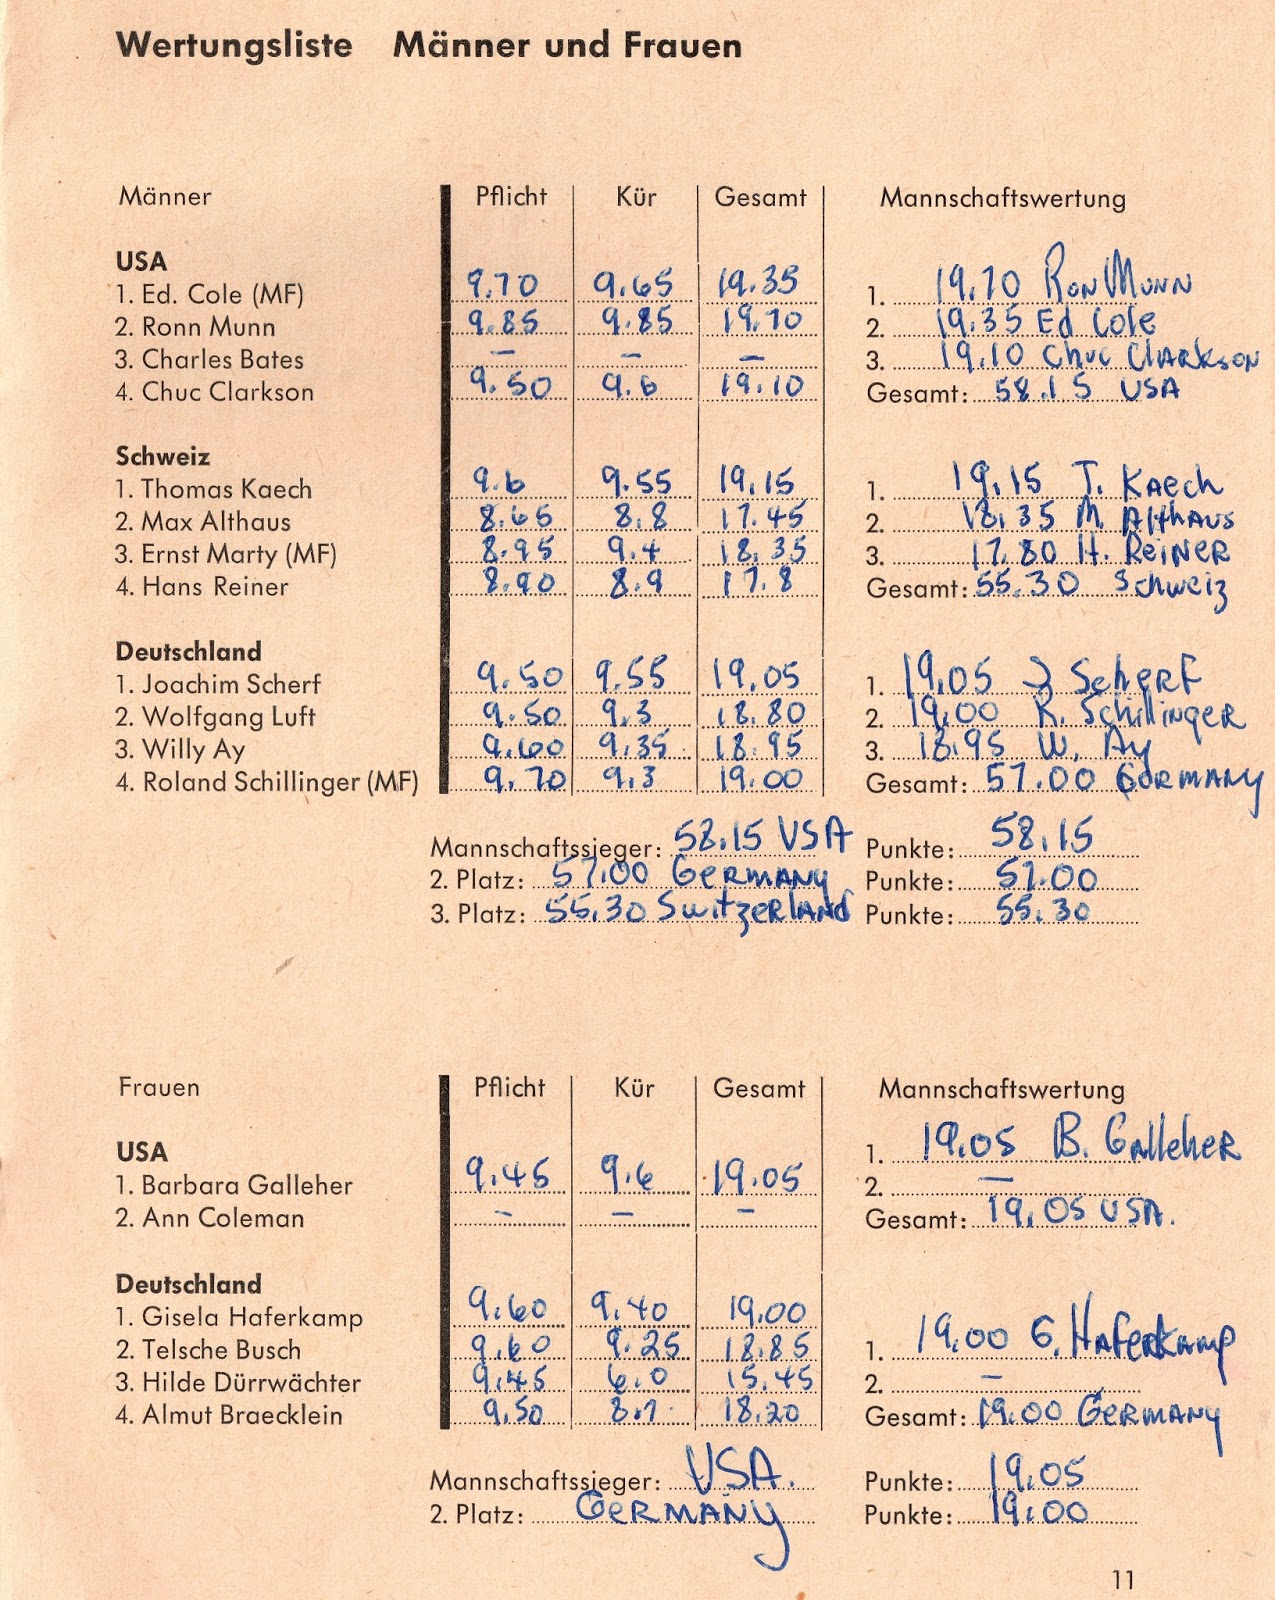 Wertungsliste Männer und Frauen
Männer Pflicht Kür Gesamt Mannschaftswertung
USA
1. Ed. Cole (MF) 9.70 9.65 19.35 1. 19.70 Ron Munn
2. Ronn Munn 9.85 9.85 19.70 2. 19.35 Ed Cole
3. Charles Bates – – – 3. 19.10 Chuc Clarkson
4. Chuc Clarkson 9.50 9.6 19.10 Gesamt: 58.15 USA
Schweiz
1. Thomas Kaech 9.6 9.55 19.15 1. 19.15 T. Kaech
2. Max Althaus 8.65 8.8 17.45 2. 18.35 M. Althaus
3. Ernst Marty (MF) 8.95 9.4 18.35 3. 17.80 H. Reiner
4. Hans Reiner 8.90 8.9 17.8 Gesamt: 55.30 Schweiz
Deutschland
1. Joachim Scherf 9.50 9.55 19.05 1. 19.05 J Scherf
2. Wolfgang Luft 9.50 9.3 18.80 2. 19.00 R. Schillinger
3. Willy Ay 9.60 9.35 18.95 3. 18.95 W. Ay
4. Roland Schillinger (MF) 9.70 9.3 19.00 Gesamt: 57.00 Germany
Mannschaftssieger: 58.15 USA Punkte: 58.15
2. Platz: 57.00 Germany Punkte: 57.00
3. Platz: 55.30 Switzerland Punkte: 55.30
Frauen Pflicht Kür Gesamt Mannschaftswertung
USA
1. Barbara Galleher 9.45 9.6 19.05 1. 19.05 B. Galleher
2. Ann Coleman – – – 2. –
Gesamt: 19.05 USA.
Deutschland
1. Gisela Haferkamp 9.60 9.40 19.00
2. Telsche Busch 9.60 9.25 18.85 1. 19.00 G. Haferkamp
3. Hilde Dürrwächter 9.45 6.0 15.45 2. –
4. Almut Braecklein 9.50 8.7 18.20 Gesamt: 19.00 Germany
Mannschaftssieger: USA. Punkte: 19.05
2. Platz: Germany Punkte: 19.00
11